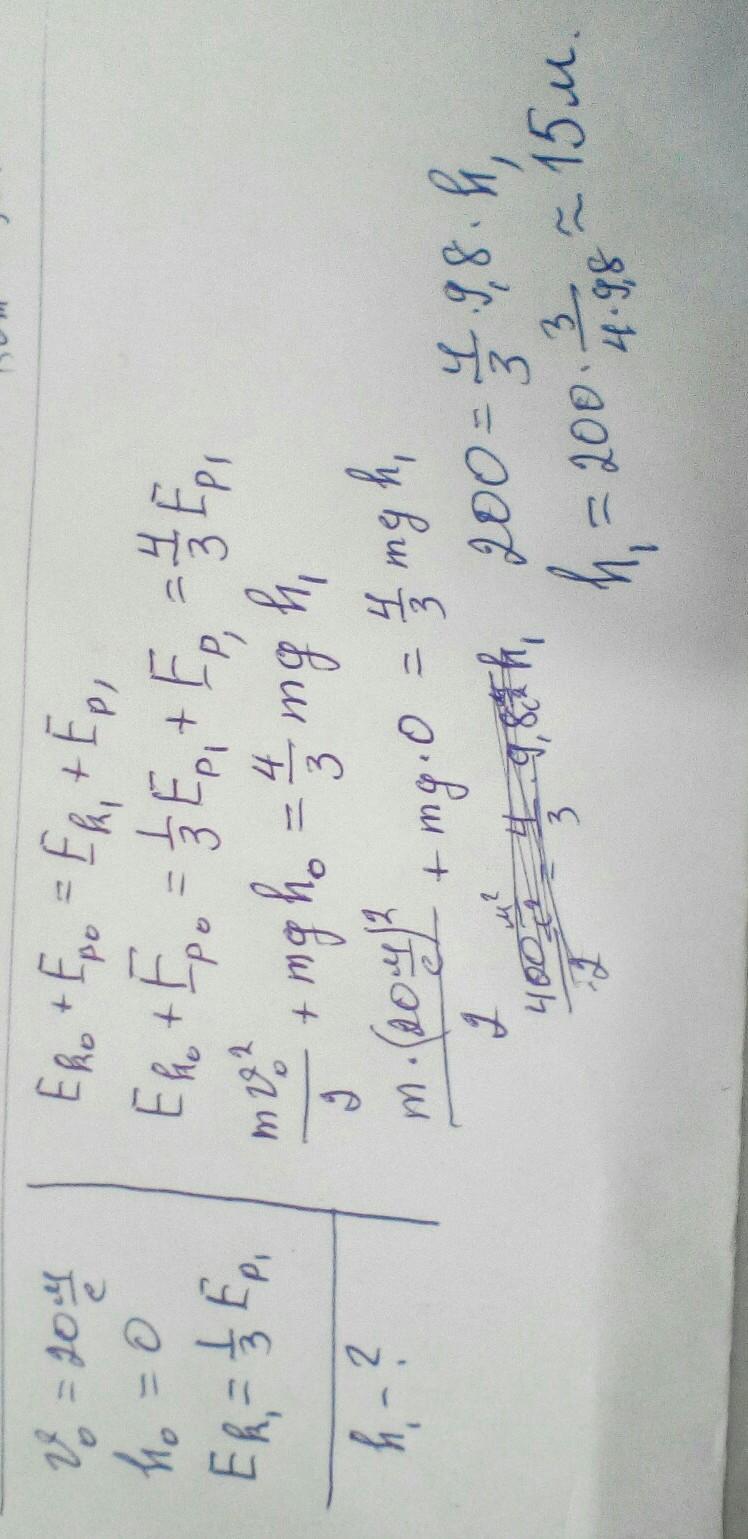 v₀ = 20 м/с
h₀ = 0
Eк₁ = 1/3 Eр₁
h₁ - ?
Eк₀ + Eр₀ = Eк₁ + Eр₁
Eк₀ + Eр₀ = 1/3 Eр₁ + Eр₁ = 4/3 Eр₁
mv₀²/2 + mgh₀ = 4/3 mgh₁
m·(20 м/с)²/2 + mg·0 = 4/3 mgh₁
200 = 4/3 · 9,8 · h₁
h₁ = 200 · 3/(4·9,8) ≈ 15 м.